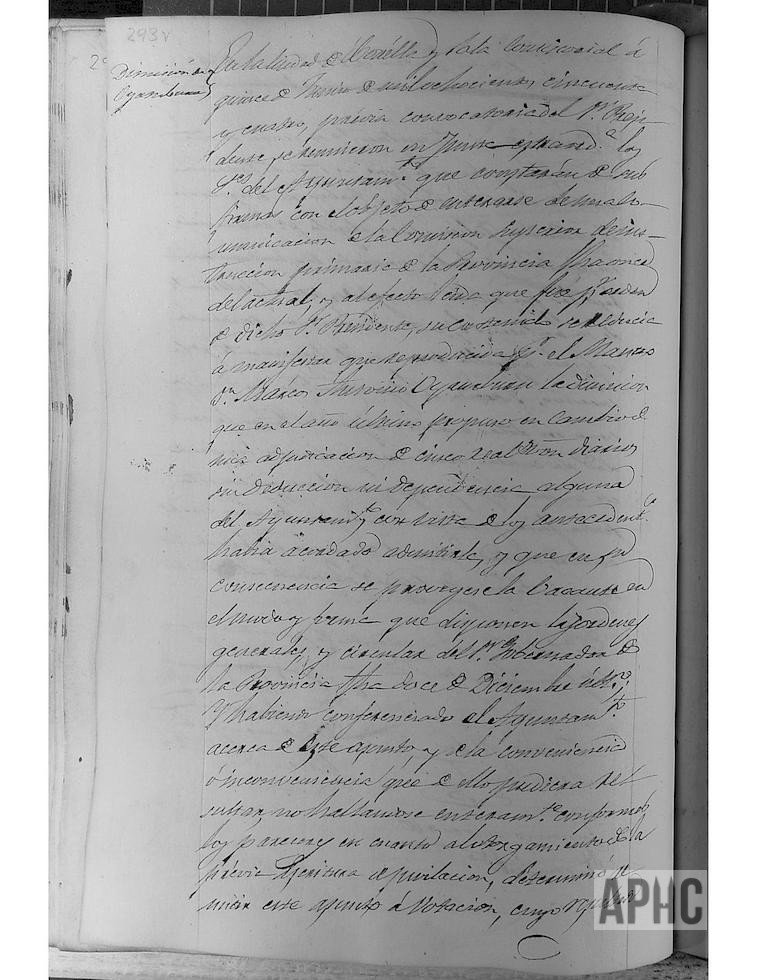 293v
Dimisión de
Oyarzbun
En la Ciudad de Corella y Sala Consistorial á
quince de Junio de mil ochocientos cincuenta
y cuatro, prévia convocatoria del Sr. Presi-
dente, se reunieron en Junta extraord.a los
S.res del Ayuntam.to que constarán de sus
firmas con el objeto de enterarse de una co-
municacion de la Comision Superior de ins-
truccion primaria de la Provincia fha once
del actual, y al efecto leida que fué p.r orden
de dicho Sr. Presidente, su contenido se reducia
á manifestar que reproducida p.r el Maestro
Dn. Marcos Antonio la dimision
que en el año último propuso en cambio de
una adjudicacion de cinco real. von diarios
sin deduccion ni dependencia alguna
del Ayuntam.to con vista de los antecedent.s
habia acordado admitirle, y que en su
consecuencia se proveyese la Vacante en
el modo y forma que disponen las ordenes
generales, y circular del Sr. Gobernador de
la Provincia fha doce de Diciembre últ.o;
Y habiendo conferenciado el Ayuntam.to
acerca de este asunto, y de la conveniencia
ó inconveniencia que de ello pudiera re-
sultar, no hallandose enteram.te conformes
los pareceres en cuanto al otorgamiento de la
prévia Escritura de jubilacion, determinó se
uniar este asunto á Votacion, cuyo
APHC